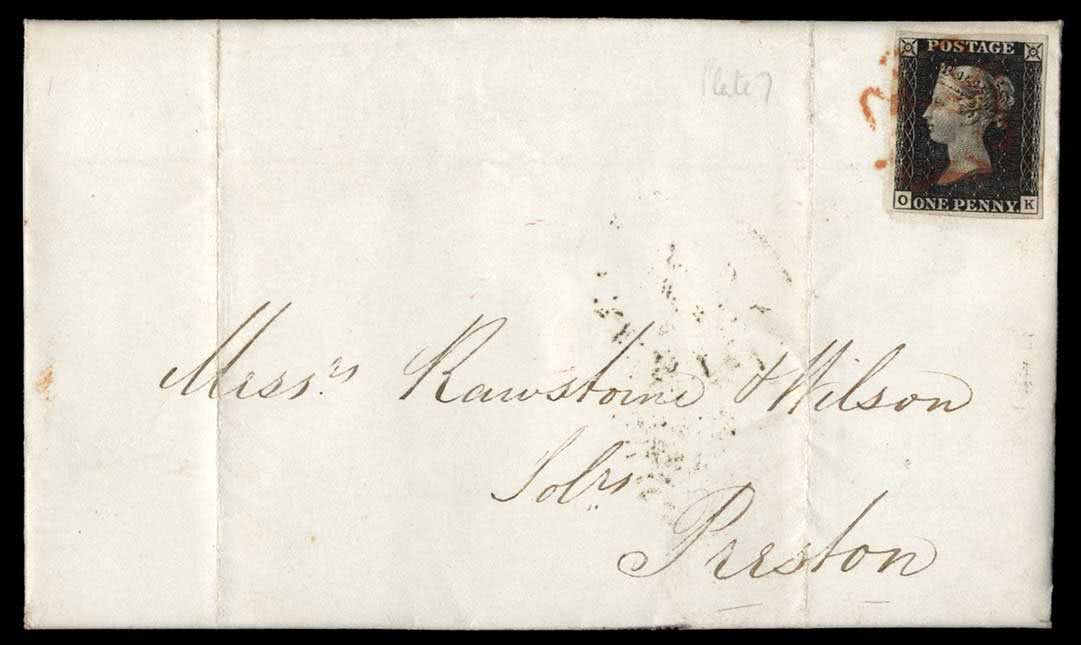 Plate 7
POSTAGE
O ONE PENNY. K
Messrs. Rawstorne & Wilson
Solrs
Preston